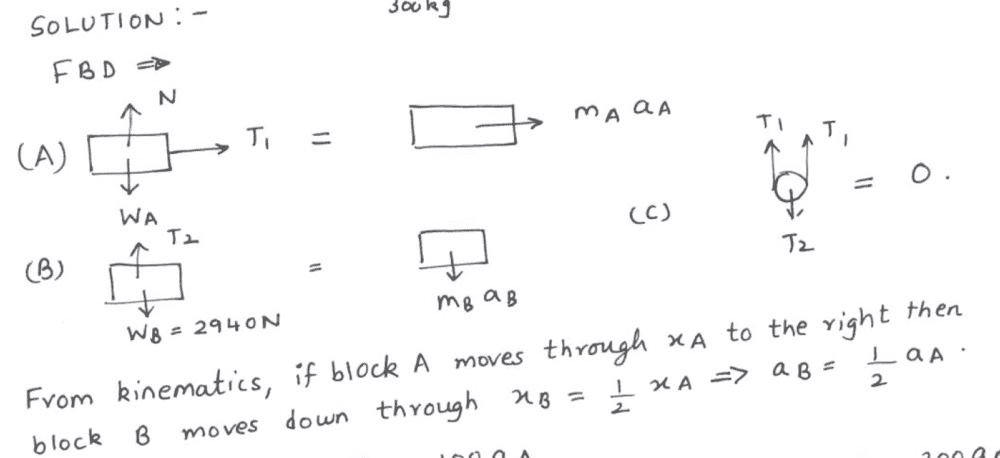 300kg
SOLUTION :-
FBD ⇒
N
(A) T1 = mA aA
WA
T1 T1
(C) = 0.
T2
T2
(B) = mB aB
WB = 2940N
From kinematics, if block A moves through xA to the right then
block B moves down through xB = 1/2 xA ⇒ aB = 1/2 aA.